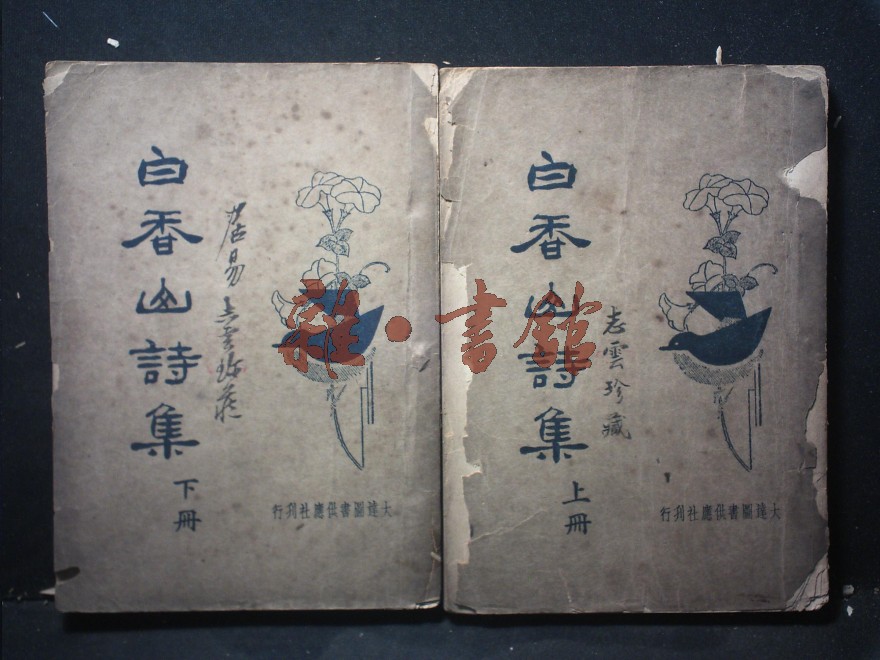 白香山詩集
下冊
居易志雲珍藏
大達圖書供應社刋行
白香山詩集
上冊
志雲珍藏
大達圖書供應社刋行
雜·書館